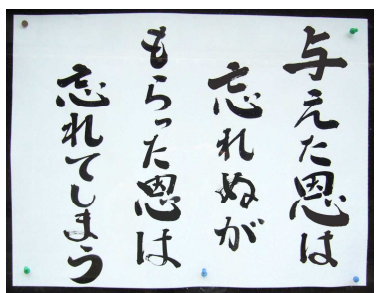 与えた恩は
忘れぬが
もらった恩は
忘れてしまう